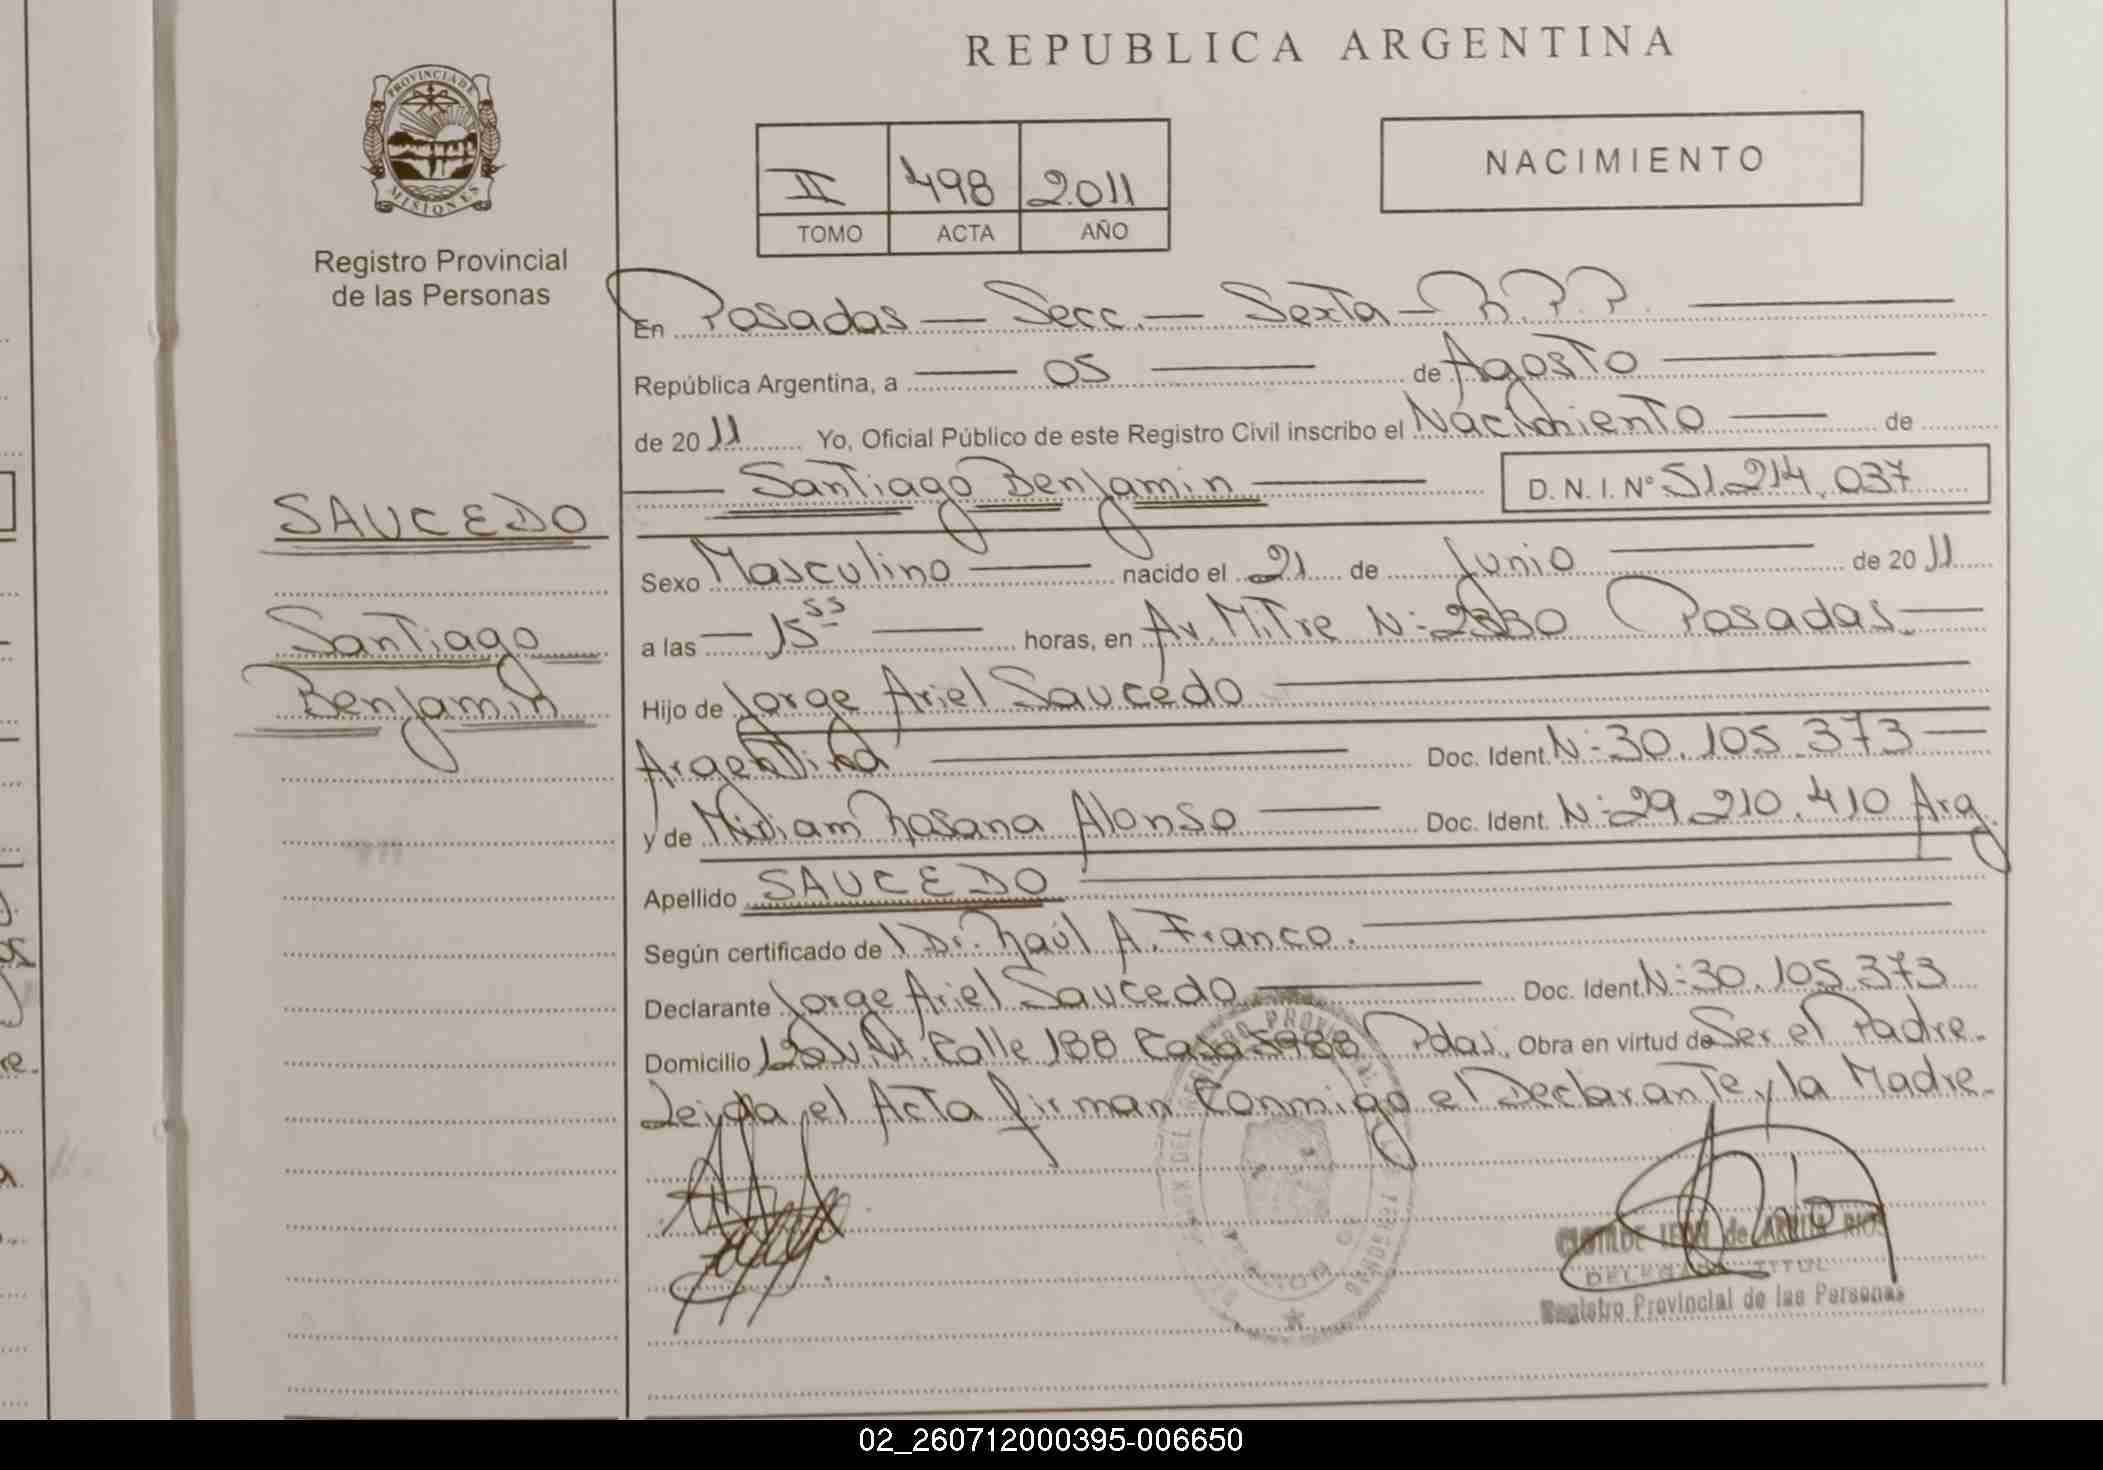 REPUBLICA ARGENTINA
PROVINCIA DE
MISIONES
Registro Provincial
de las Personas
II 498 2.011
TOMO ACTA AÑO
NACIMIENTO
En Posadas — Secc. — Sexta — R.P.P.
República Argentina, a — 05 — de Agosto
de 2011 Yo, Oficial Público de este Registro Civil inscribo el Nacimiento — de
— Santiago Benjamin — D. N. I. Nº 51.214.037
SAUCEDO
Santiago
Benjamin
Sexo Masculino — nacido el 21 de Junio — de 2011
a las — 15 55 — horas, en Av. Mitre N: Posadas. —
Hijo de Jorge Ariel Saucedo
Argentina — Doc. Ident. N: 30.105.373 —
y de Miriam Rosana Alonso — Doc. Ident. N: 29.210.410 Arg.
Apellido SAUCEDO
Según certificado de Dr. Raúl A. Franco.
Declarante Jorge Ariel Saucedo — Doc. Ident. N: 30.105.373
Domicilio Calle 188 Casa 5988 Pdas. Obra en virtud de Ser el Padre.
Leida el Acta firman Conmigo el Declarante y la Madre.
de
DELEGADA TITUL
Registro Provincial de las Personas
02_260712000395-006650